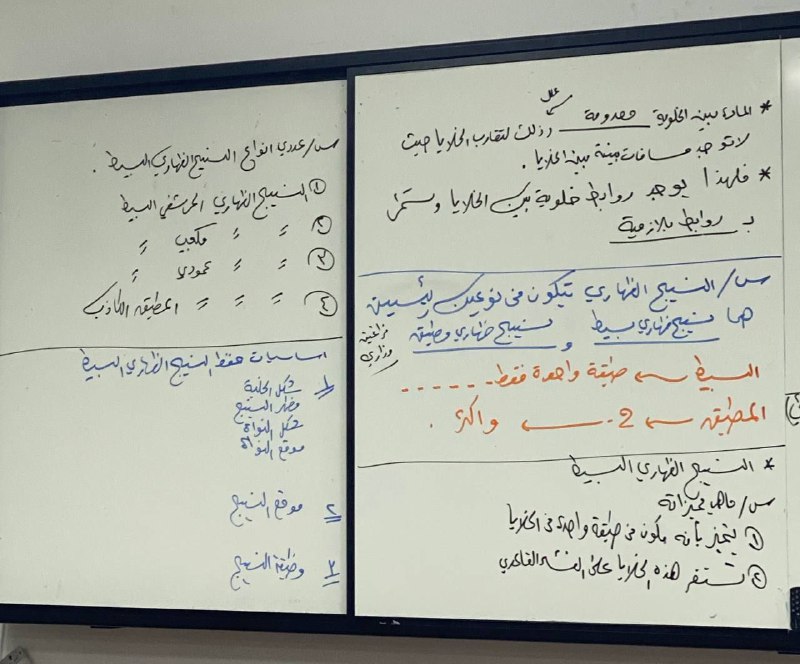 * المادة بين الخلوية معدومة وذلك لتقارب الخلايا حيث
علل
لا توجد مسافات بينية بين الخلايا .
* فلهذا يوجد روابط خلوية بين الخلايا وتسمى
بـ روابط بلازمية
س/ النسيج الظهاري يتكون من نوعين رئيسيين
هما نسيج ظهاري بسيط و نسيج ظهاري مطبق
فراغين
وزاري
البسيط ← طبقة واحدة فقط ------
المطبق ← 2 ← واكثر .
* النسيج الظهاري البسيط
س/ ماهي مميزاته
① يتميز بأنه مكون من طبقة واحدة من الخلايا
② تستقر هذه الخلايا على الغشاء القاعدي
س/ عددي انواع النسيج الظهاري البسيط .
① النسيج الظهاري الحرشفي البسيط
② 〃 〃 مكعبي 〃
③ 〃 〃 عمودي 〃
④ 〃 〃 〃 المطبق الكاذب
اساسيات حفظ النسيج الظهاري البسيط
١ شكل الخلية
مظهر النسيج
شكل النواة
موقع النواة
٢ موقع النسيج
٣ وظيفة النسيج